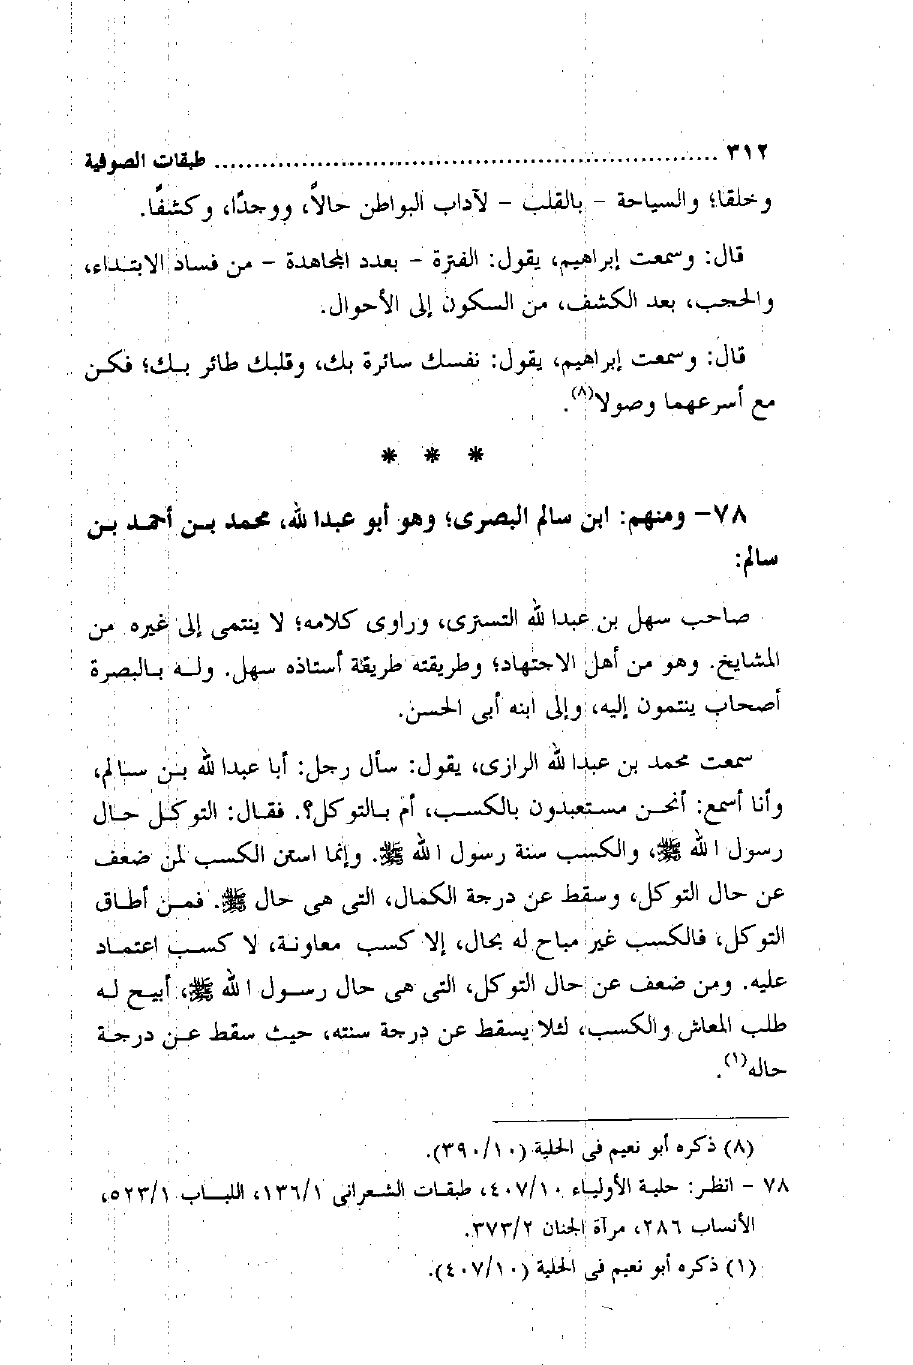 ٣١٢ ................................................................ طبقات الصوفية
وخلقا؛ والسياحة - بالقلب - لآداب البواطن حالاً، ووجدًا، وكشفًا.
قال: وسمعت إبراهيم، يقول: الفترة - بعدد المجاهدة - من فساد الابتداء،
والحجب، بعد الكشف، من السكون إلى الأحوال.
قال: وسمعت إبراهيم، يقول: نفسك سائرة بك، وقلبك طائر بك؛ فكن
مع أسرعهما وصولا(٨).
* * *
٧٨- ومنهم: ابن سالم البصرى؛ وهو أبو عبدالله، محمد بن أحمد بن
سالم:
صاحب سهل بن عبدالله التسترى، وراوى كلامه؛ لا ينتمى إلى غيره من
المشايخ. وهو من أهل الاجتهاد؛ وطريقته طريقة أستاذه سهل. وله بالبصرة
أصحاب ينتمون إليه، وإلى ابنه أبى الحسن.
سمعت محمد بن عبدالله الرازى، يقول: سأل رجل: أبا عبدالله بن سالم،
وأنا أسمع: أنحن مستعبدون بالكسب، أم بالتوكل؟. فقال: التوكل حال
رسول الله ﷺ، والكسب سنة رسول الله ﷺ. وإنما استن الكسب لمن ضعف
عن حال التوكل، وسقط عن درجة الكمال، التى هى حال ﷺ. فمن أطاق
التوكل، فالكسب غير مباح له بحال، إلا كسب معاونة، لا كسب اعتماد
عليه. ومن ضعف عن حال التوكل، التى هى حال رسول الله ﷺ، أبيح له
طلب المعاش والكسب، لئلا يسقط عن درجة سنته، حيث سقط عن درجة
حاله(١).
(٨) ذكره أبو نعيم فى الحلية (٣٩٠/١٠).
٧٨ - انظر: حلية الأولياء ٤٠٧/١٠، طبقات الشعرانى ١٣٦/١، اللباب ٥٢٣/١،
الأنساب ٢٨٦، مرآة الجنان ٣٧٣/٢.
(١) ذكره أبو نعيم فى الحلية (٤٠٧/١٠).